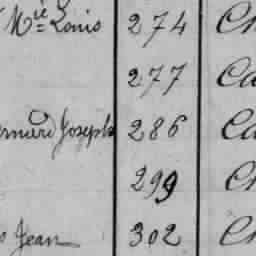 Mie Louis 274 Ch
277 Ca
ernard Joseph 286 Ca
299 Ch
s Jean 302 Ch